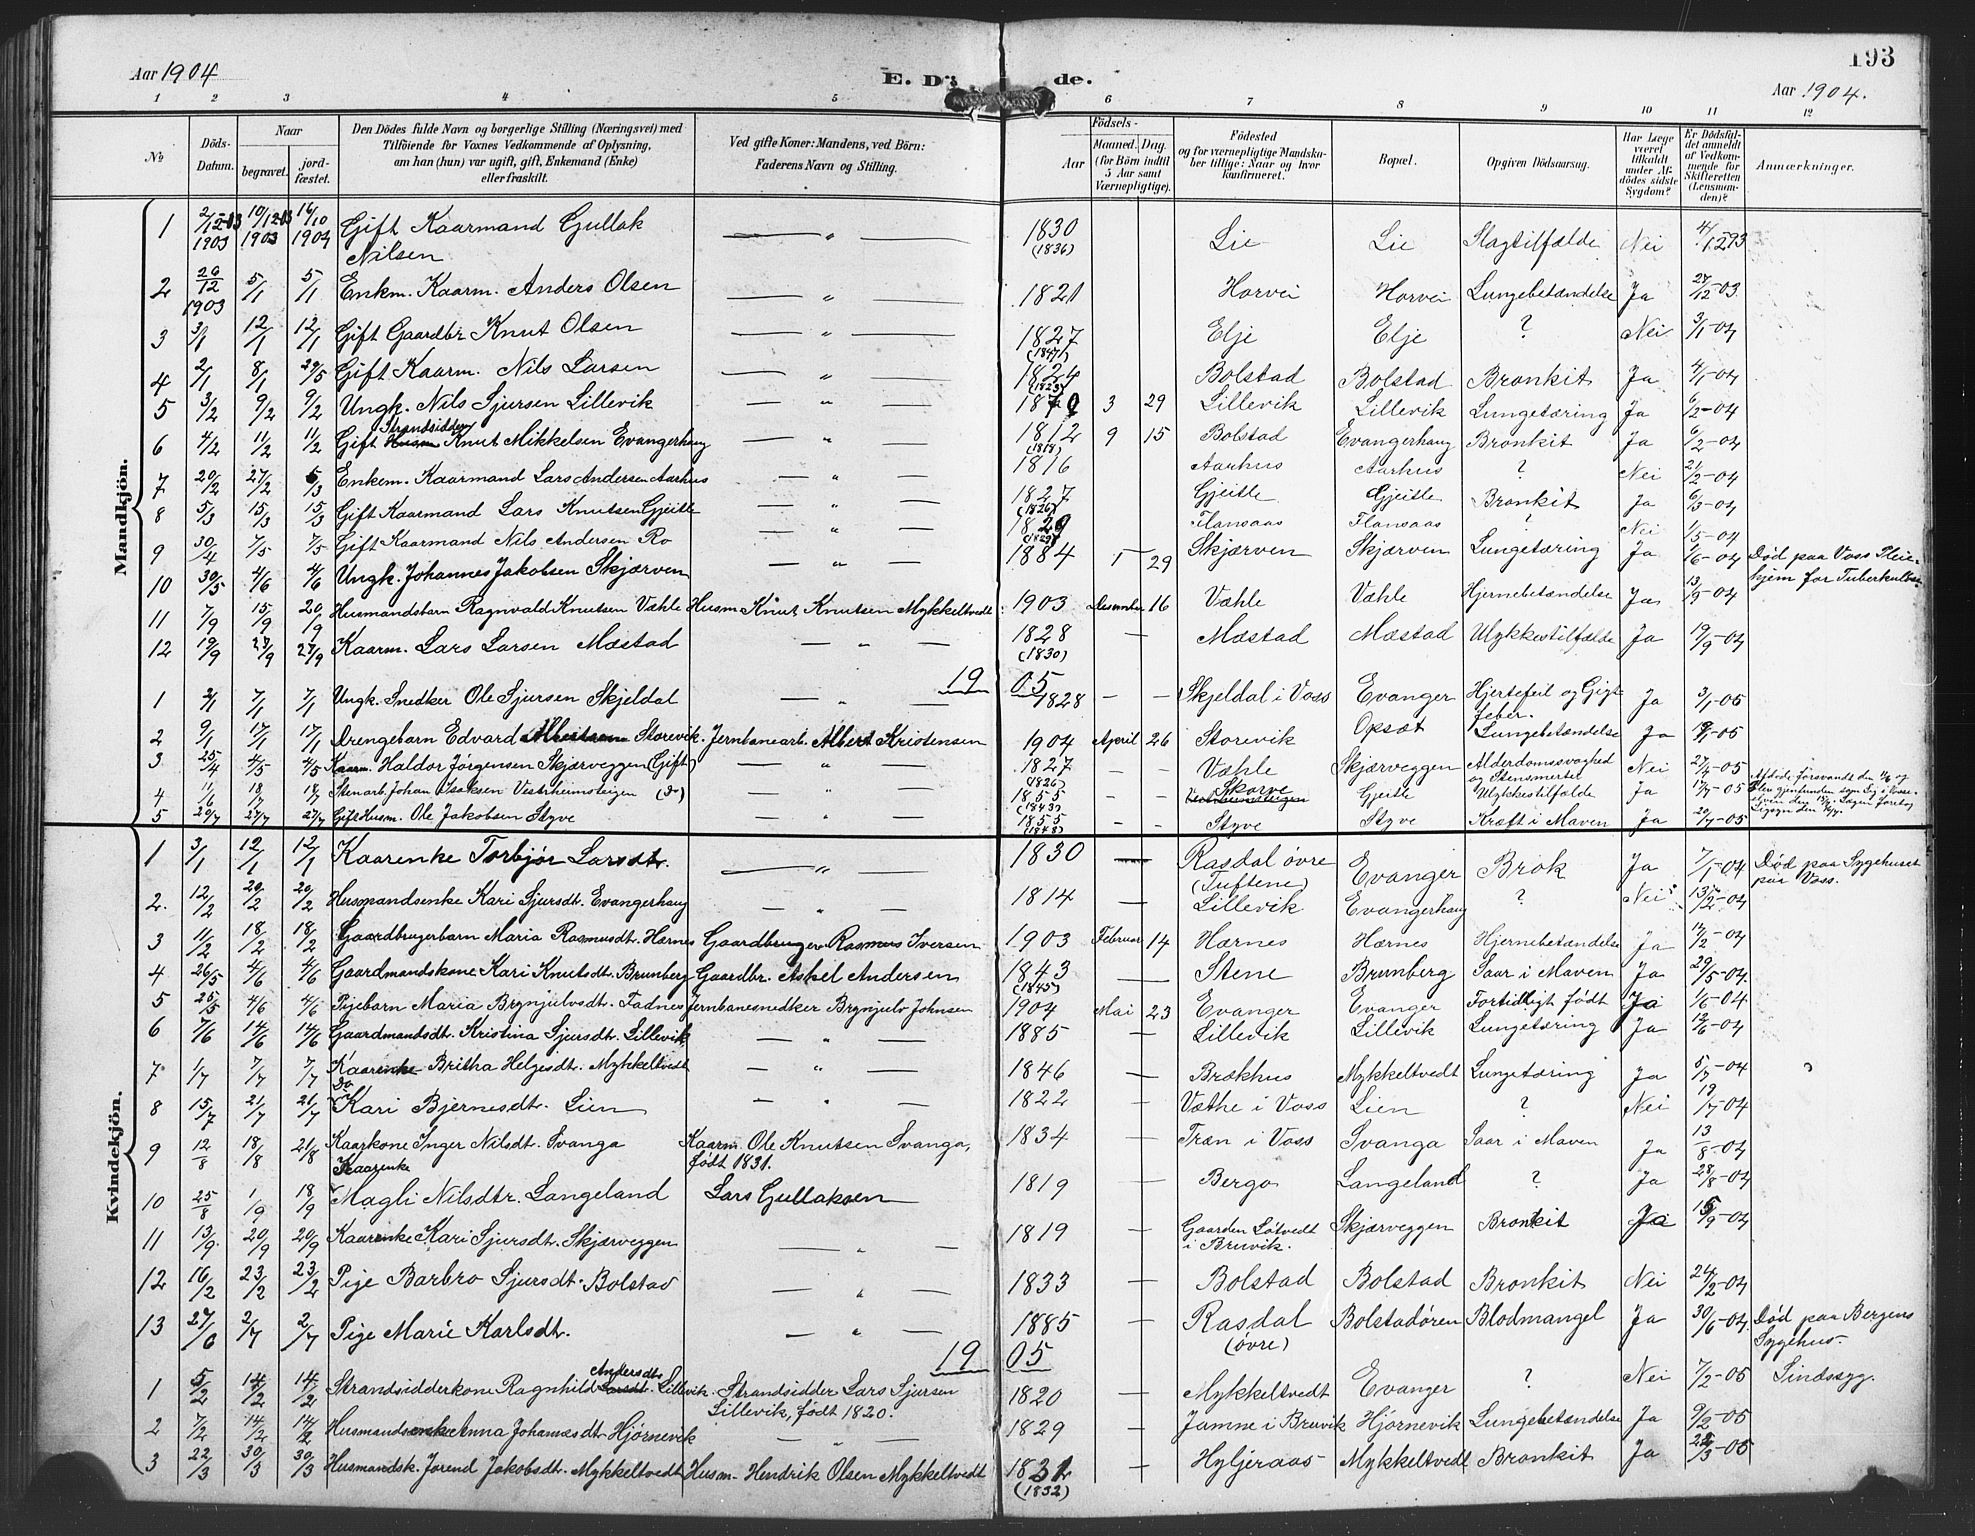 193
Aar 1904
E. Dö de.
Aar 1904.
1 2 3 4 5 6 7 8 9 10 11 12
No
Döds-Datum.
Naar
begravet.
jord-fæstet.
Den Dödes fulde Navn og borgerlige Stilling (Næringsvei) med
Tilföiende for Voxnes Vedkommende af Oplysning,
am han (hun) var ugift, gift, Enkemand (Enke)
eller fraskilt.
Ved gifte Koner: Mandens, ved Börn:
Faderens Navn og Stilling.
Födsels-
Aar
Maaned. Dag.
(for Börn indtil
5 Aar samt
Værnepligtige).
Födested
og for værnepligtige Mandska-
ber tillige: Naar og hvor
konfirmeret.
Bopæl.
Opgiven Dödsaarsag.
Har Læge
været
tilkaldt
under Af-
dödes sidste
Sygdom?
Er Dödsfal-
det anmeldt
af Vedkom-
mende for
Skifteretten
(Lensman-
den)?
Anmærkninger.
Mandkjön.
1 2/12-03 1903 10/12 03 1903 16/10 1904 Gift Kaarmand Gullak Nilsen — " — 1830 (1836) Lie Lie Slagtilfælde Nei
2 26/12 1903 5/1 5/1 Enkm. Kaarm. Anders Olsen — " — 1821 Horvei Horvei Lungebetændelse Ja 27/12-03.
3 3/1 12/1 12/1 Gift Gaardbr Knut Olsen — " — 1827 Elje Elje ? Nei 3/1-04
4 2/1 8/1 29/5 Gift Kaarm. Nils Larsen — " — 1824 (1823) Bolstad Bolstad Bronkit Ja 4/1-04
5 3/2 9/2 9/2 Ungk. Nils Sjursen Lillevik — " — 1879 3 29 Lillevik Lillevik Lungetæring Ja 6/2-04
6 4/2 11/2 11/2 Gift Strandsidder Husm Knut Mikkelsen Evangerhaug — " — 1812 (1818) 9 15 Bolstad Evangerhaug Bronkit Ja 6/2-04
7 20/2 27/2 6/3 Enkem. Kaarmand Lars Andersen Aarhus — " — 1816 Aarhus Aarhus ? Nei 21/2-04
8 5/3 15/3 15/3 Gift Kaarmand Lars Knutsen Gjeitle — " — 1827 (1826) Gjeitle Gjeitle Bronkit Ja 6/3-04
9 30/4 7/5 7/5 Gift Kaarmand Nils Andersen Ro — " — 1829 Flansaas Flansaas ? Nei 1/5-04
10 30/5 4/6 4/6 Ungk. Johannes Jakobsen Skjærven — " — 1884 1 29 Skjærven Skjærven Lungetæring Ja 1/6-04 Død paa Voss Pleie-hjem for Tuberkuløse
11 7/9 15/9 20/9 Husmandsbarn Ragnvald Knutsen Væhle Husm Knut Knutsen Mykkeltvedt 1903 Desember 16 Væhle Væhle Hjernebetændelse Ja 13/9-04
12 19/9 27/9 27/9 Kaarm. Lars Larsen Mæstad — " — 1828 (1830) — Mæstad Mæstad Ulykkestilfælde Ja 19/9-04
1905
1 2/1 7/1 7/1 Ungk. Snedker Ole Sjursen Skjeldal — " — 1828 — — Skjeldal i Voss Evanger Hjertefeil og Gigtfeber. Ja 3/1-05
2 9/1 17/1 17/1 Drengebarn Edvard Albertsen Storevik. Jernbanearb. Albert Kristensen 1904 April 26 Storevik Opsæt Lungebetændelse Ja 9/1-05
3 25/4 4/5 4/5 Kaarm. Haldor Jørgensen Skjærveggen (Gift) — " — 1827 (1826) — — Væhle Skjærveggen Alderdomssvaghed og Stensmerter Nei 27/4-05
4 11/6 18/7 18/7 Stenarb. Johan Isaksen Vestrheimsteigen (Do) — " — 1855 (1843) — — Skorve Vestrheimsteigen Gjeitle Ulykkestilfælde Ja 17/7-05
5 20/7 27/7 27/7 Gift Husm. Ole Jakobsen Styve — " — 1855 (1848) — — Styve Styve Kræft i Maven Ja 20/7-05
Kvindekjön.
1 3/1 12/1 12/1 Kaarenke Torbjør Larsdt. — " — 1830 — Rasdal øvre (Tuftene) Evanger Brok Ja 7/1-04 Død paa Sygehuset paa Voss.
2. 12/2 20/2 20/2 Husmandsenke Kari Sjursdt. Evangerhaug — " — 1814 — Lillevik Evangerhaug ? Nei 13/2-04
3 11/2 18/2 18/2 Gaardbrugerbarn Maria Rasmusdt. Hærnes Gaardbruger Rasmus Iversen 1903 Februar 14 Hærnes Hærnes Hjernebetændelse Ja 12/2-04
4 26/5 4/6 4/6 Gaardmandskone Kari Knutsdt. Brunberg Gaardbr. Askel Andersen 1843 (1845) — Stene Brunberg Saar i Maven Ja 29/5-04.
5 25/5 4/6 4/6 Pigebarn Maria Brynjulvsdt. Fadnes Jernbanesnedker Brynjulv Johnsen 1904 Mai 23 Evanger Evanger Fortidligt født Ja 1/6-04
6 7/6 14/6 14/6 Gaardmandsdt. Kristina Sjursdt. Lillevik, — " — 1885 — Lillevik Lillevik Lungetæring Ja 12/6-04
7 1/7 7/7 7/7 Kaarenke Britha Helgesdt. Mykkeltvedt — " — 1846 — Brækhus Mykkeltvedt Lungetæring Ja 5/7-04
8 15/7 21/7 21/7 Do Kari Bjernesdt. Lien — " — 1822 — Væthe i Voss Lien ? Nei 18/7-04
9 12/8 18/8 21/8 Kaarkone Inger Nilsdt. Svanga Kaarm Ole Knutsen Svanga, født 1831. 1834 — Træn i Voss Svanga Saar i Maven Ja 13/8-04
10 25/8 1/9 18/9 Kaarenke Magli Nilsdtr. Langeland Lars Gullaksen — 1819 — Bergo Langeland ? Ja 28/8-04
11 13/9. 20/9 20/9 Kaarenke Kari Sjursdt. Skjærveggen — " — 1819 — Gaarden Løtvedt i Bruvik. Skjærveggen Bronkit Ja 15/9-04
12 16/2 23/2 23/2 Pige Barbro Sjursdt. Bolstad — " — 1833 — Bolstad Bolstad Bronkit Nei 24/2-04
13 27/6 2/7 2/7 Pige Marie Karlsdt. — " — 1885 — Rasdal (øvre) Bolstadøren Blodmangel Ja 30/6-04. Død paa Bergens Sygehus.
1905
1 5/2 14/2 14/2 Strandsidderkone Ragnhild Andersdt Larsdt. Lillevik. Strandsidder Lars Sjursen Lillevik, født 1820. 1820 — Mykkeltvedt Evanger ? Nei 7/2-05 Sindssyg.
2 7/2 14/2 14/2 Husmandsenke Anna Johannesdt. Hjørnevik — " — 1829 — Jamne i Bruvik Hjørnevik Lungebetændelse Ja 9/2-05
3 22/3 30/3 30/3 Husmandsk. Jorend Jakobsdt. Mykkeltvedt Husm. Hendrik Olsen Mykkeltvedt 1831 (1832) — Hyljeraas Mykkeltvedt Bronkit Ja 22/3-05